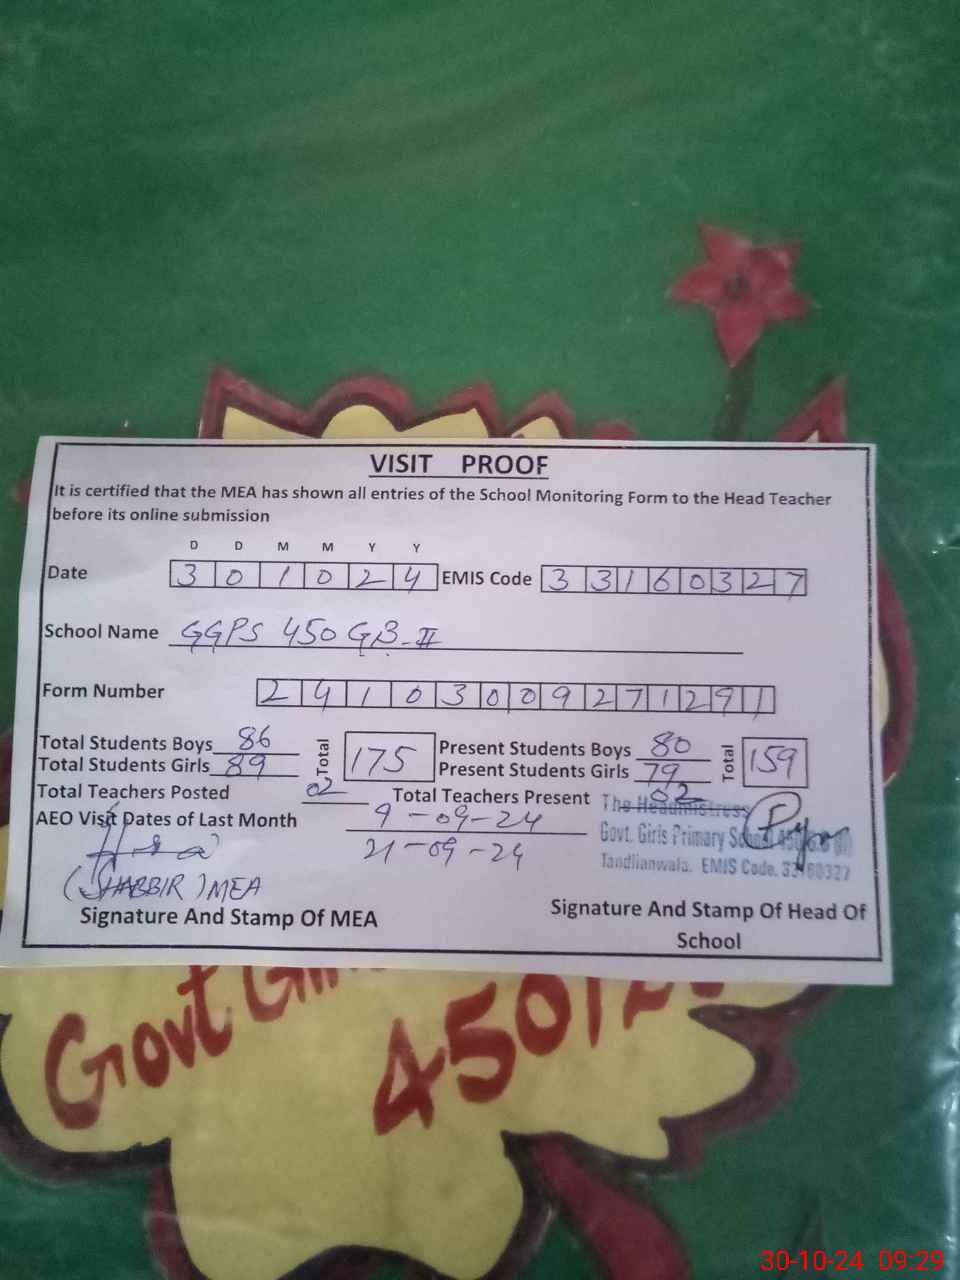 VISIT PROOF
It is certified that the MEA has shown all entries of the School Monitoring Form to the Head Teacher
before its online submission
D D M M Y Y
Date 3 0 1 0 2 4 EMIS Code 3 3 1 6 0 3 2 7
School Name GGPS 450 GB-II
Form Number 2 4 1 0 3 0 0 9 2 7 1 2 9 1
Total Students Boys 86 Total 175 Present Students Boys 80 Total 159
Total Students Girls 89 Present Students Girls 79
Total Teachers Posted 02 Total Teachers Present 02
AEO Visit Dates of Last Month 9-09-24
21-09-24
The Headmistress
Govt. Girls Primary School 450
Tandlianwala. EMIS Code. 33160327
(SHABBIR) MEA
Signature And Stamp Of MEA
Signature And Stamp Of Head Of
School
Govt
450
30-10-24 09:29